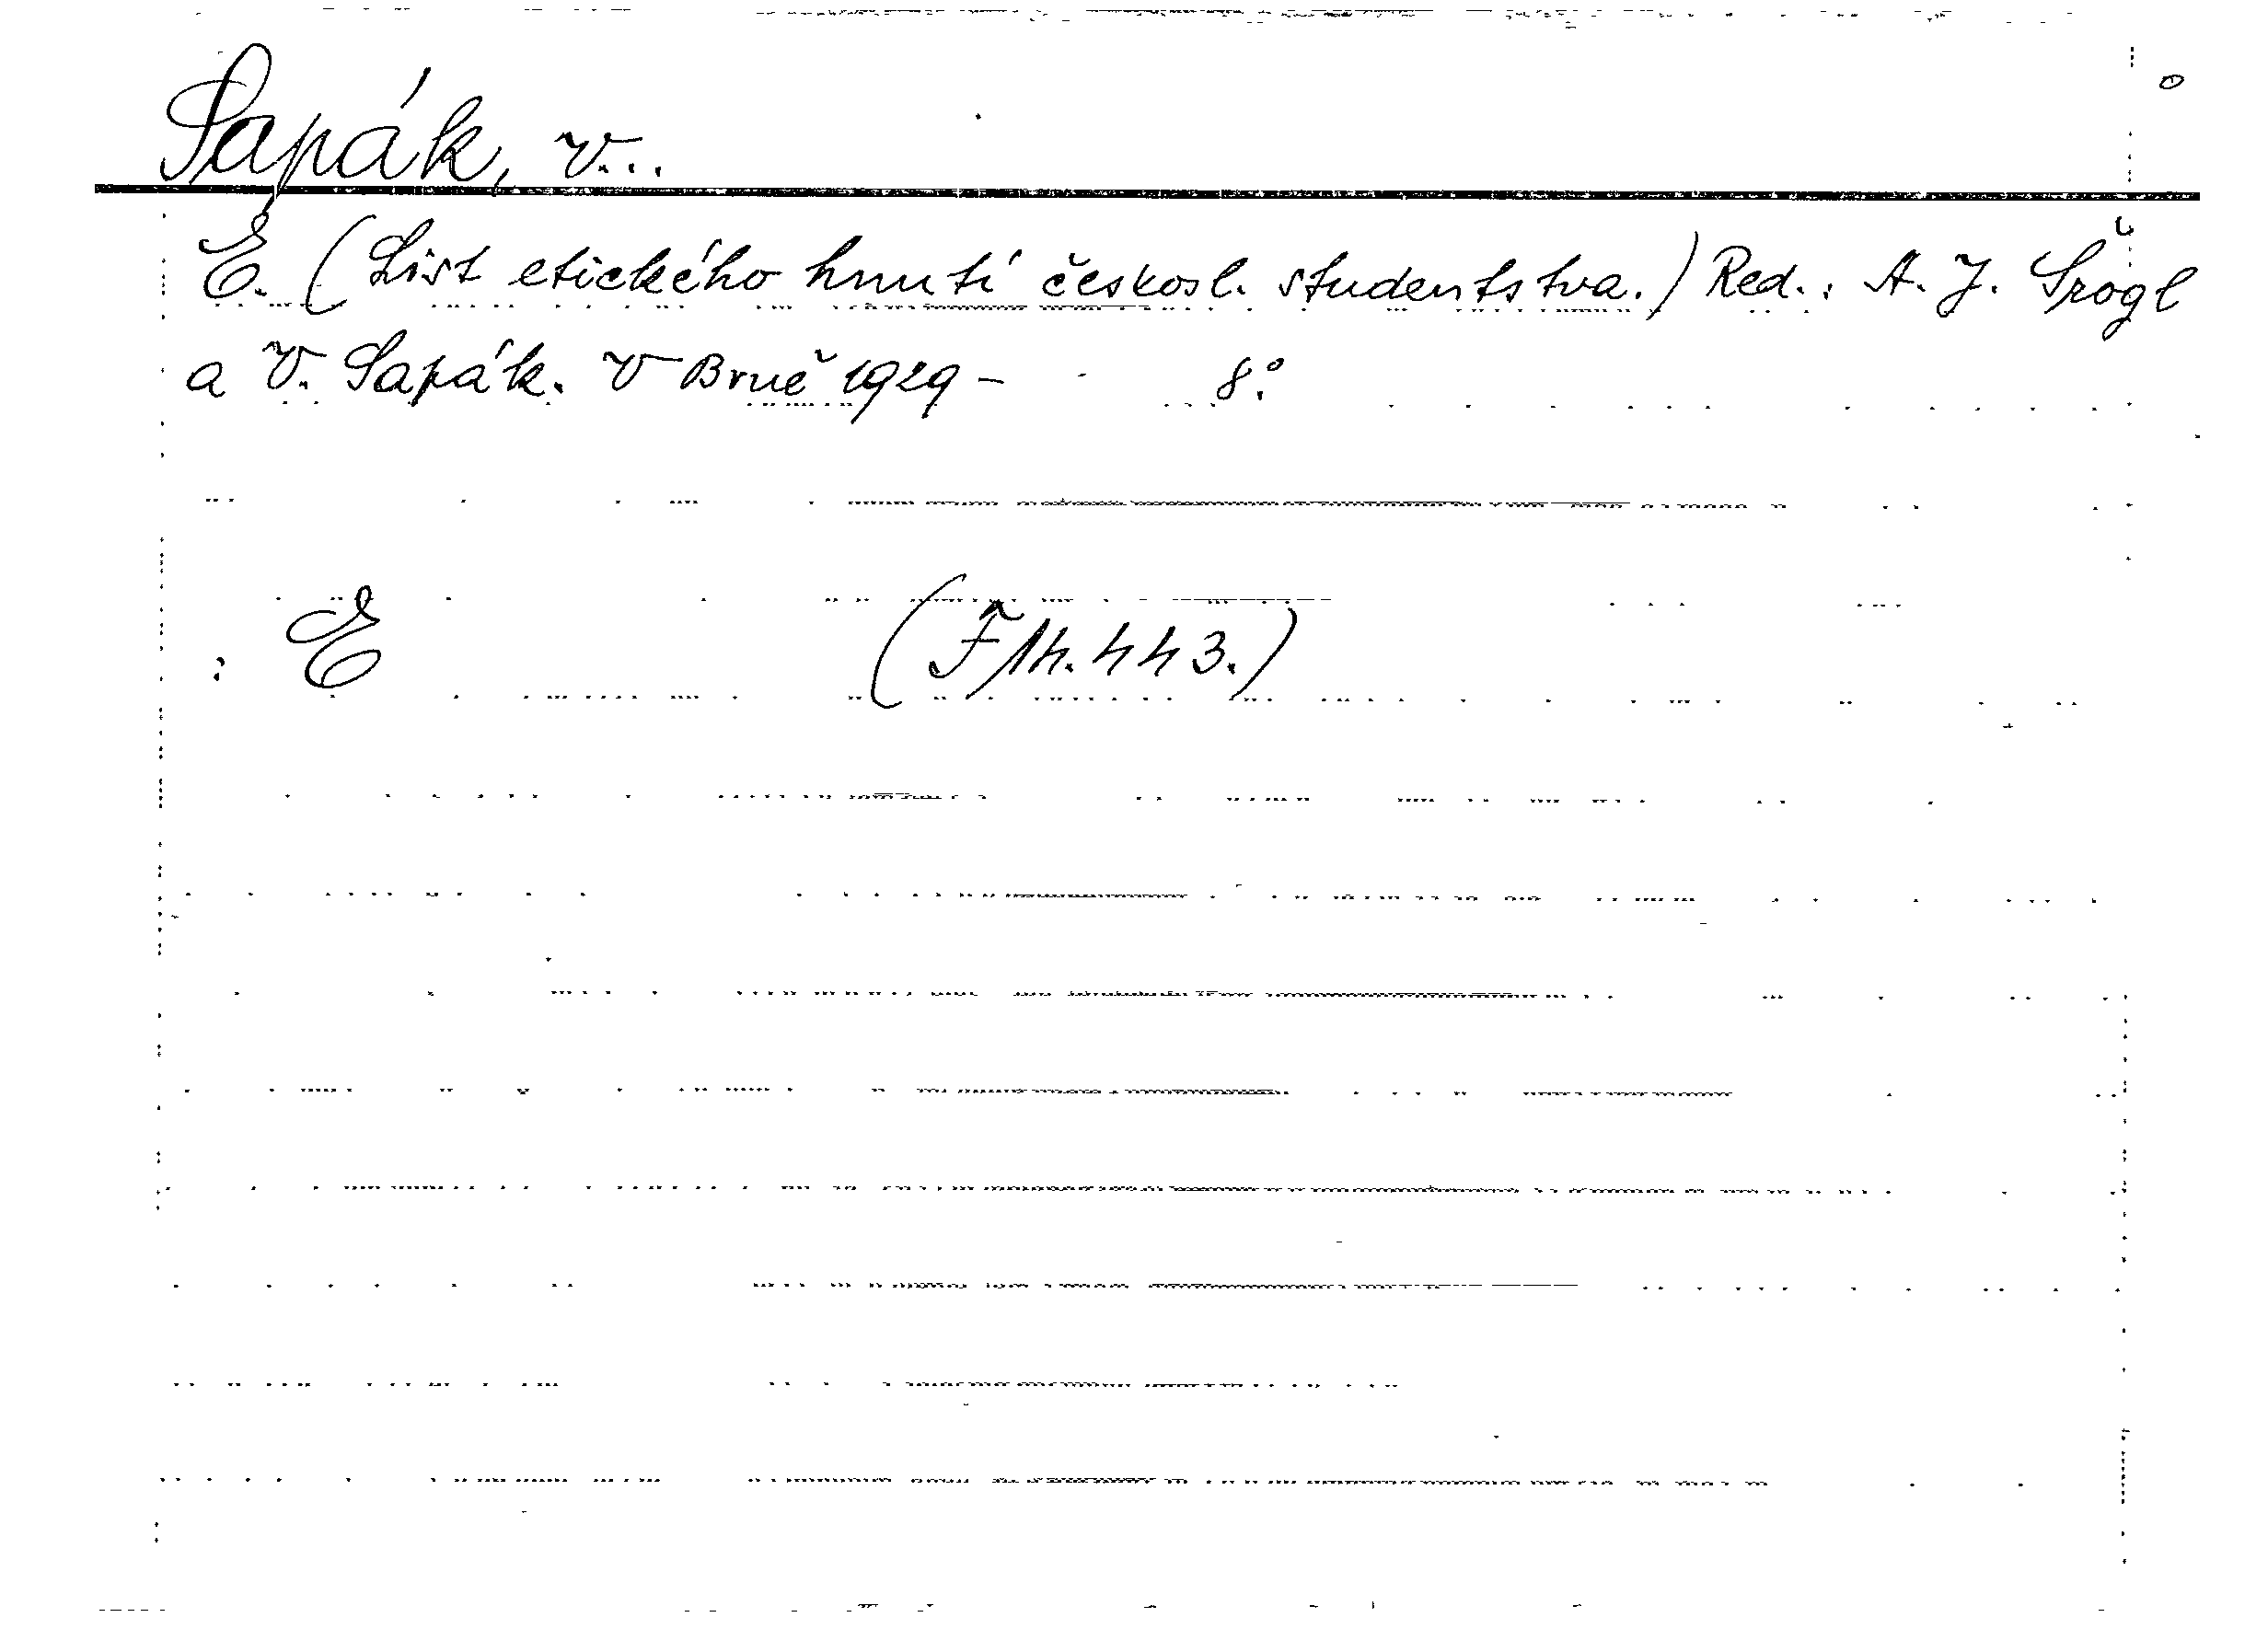 Sapák, V...
E. (List etického hnutí českosl. studentstva.) Red.: A. J. Šrogl
a V. Sapák. V Brně 1929 - 8°.
: E (F 14.443.)